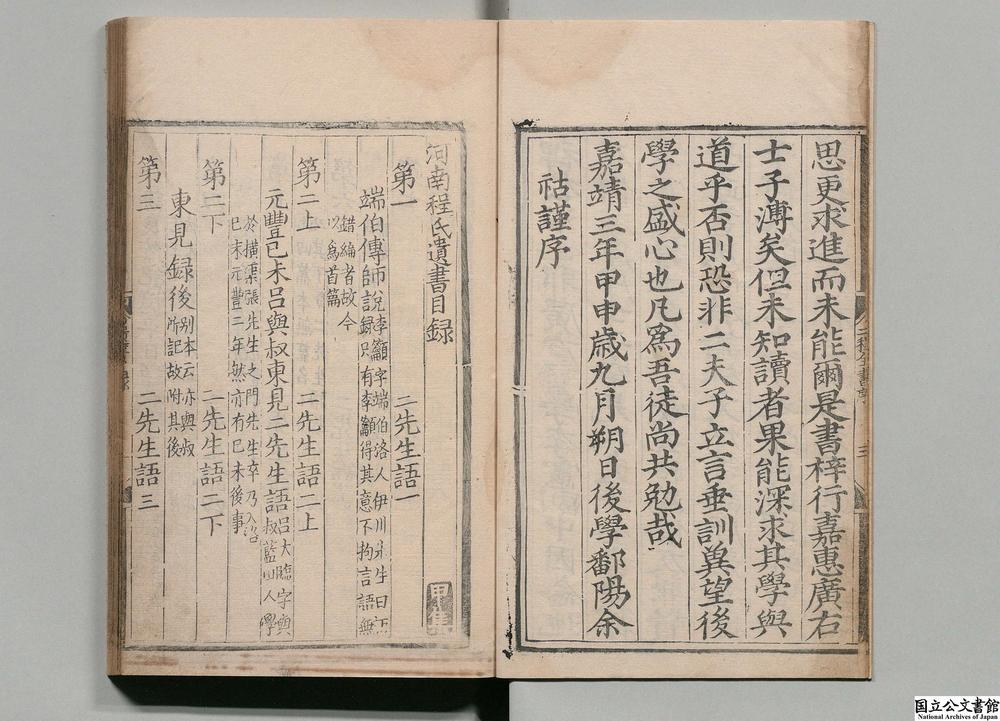 思更求進而未能爾是書梓行嘉惠廣右
士子溥矣但未知讀者果能深求其學與
道乎否則恐非二夫子立言垂訓冀望後
學之盛心也凡爲吾徒尚共勉哉
嘉靖三年甲申歲九月朔日後學鄱陽余
祜謹序
三
河南程氏遺書目録
第一 二先生語一
端伯傳師說 李籲字端伯洛人伊川先生曰語
録只有李籲得其意不拘言語無
錯編者故今
以爲首篇
第二上 二先生語二上
元豐己未呂與叔東見二先生語 呂大臨字與
叔藍田人學
於橫渠張先生之門先生卒乃入洛
己未元豐二年然亦有己未後事
第二下 二先生語二下
東見録後 別本云亦與叔
所記故附其後
第三 二先生語三
国立公文書館
National Archives of Japan